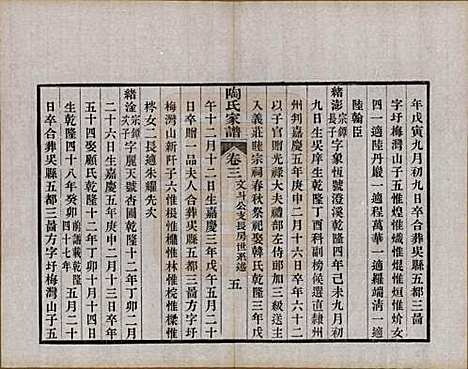 年戊寅九月初九日卒合葬吳縣五都三啚
字圩梅灣山子五惟煌惟熾惟焜惟烜惟炌女
四一適陸丹巖一適程萬華一適羅端淸一適
陸翰臣
緒澎宗鐸長子字象恆號澄溪乾隆四年己未九月初
九日生吳庠生乾隆丁酉科副榜候選直隸州
州判嘉慶五年庚申二月十六日卒年六十二
以子官贈光祿大夫禮部左侍郎加三級送主
入義莊睦宗祠春秋祭祀娶韓氏乾隆三年戊
陶氏家譜
卷三
支長房世系述
五
午十二月十二日生嘉慶三年戊午五月二十
日卒贈一品夫人合葬吳縣五都三啚方字圩
梅灣山新阡子六惟
惟林惟
柊女二長適朱耀先次
緒淦宗鐸次子字麗天號杏圃乾隆十二年丁卯二月
生嘉慶五年庚申二月十三日卒年
五十四娶顧氏乾隆十二年丁卯十月十四日
生乾隆四十八年癸卯前譜載乾隆四十七年五月二十
日卒合葬吳縣五都三啚方字圩梅灣山子五